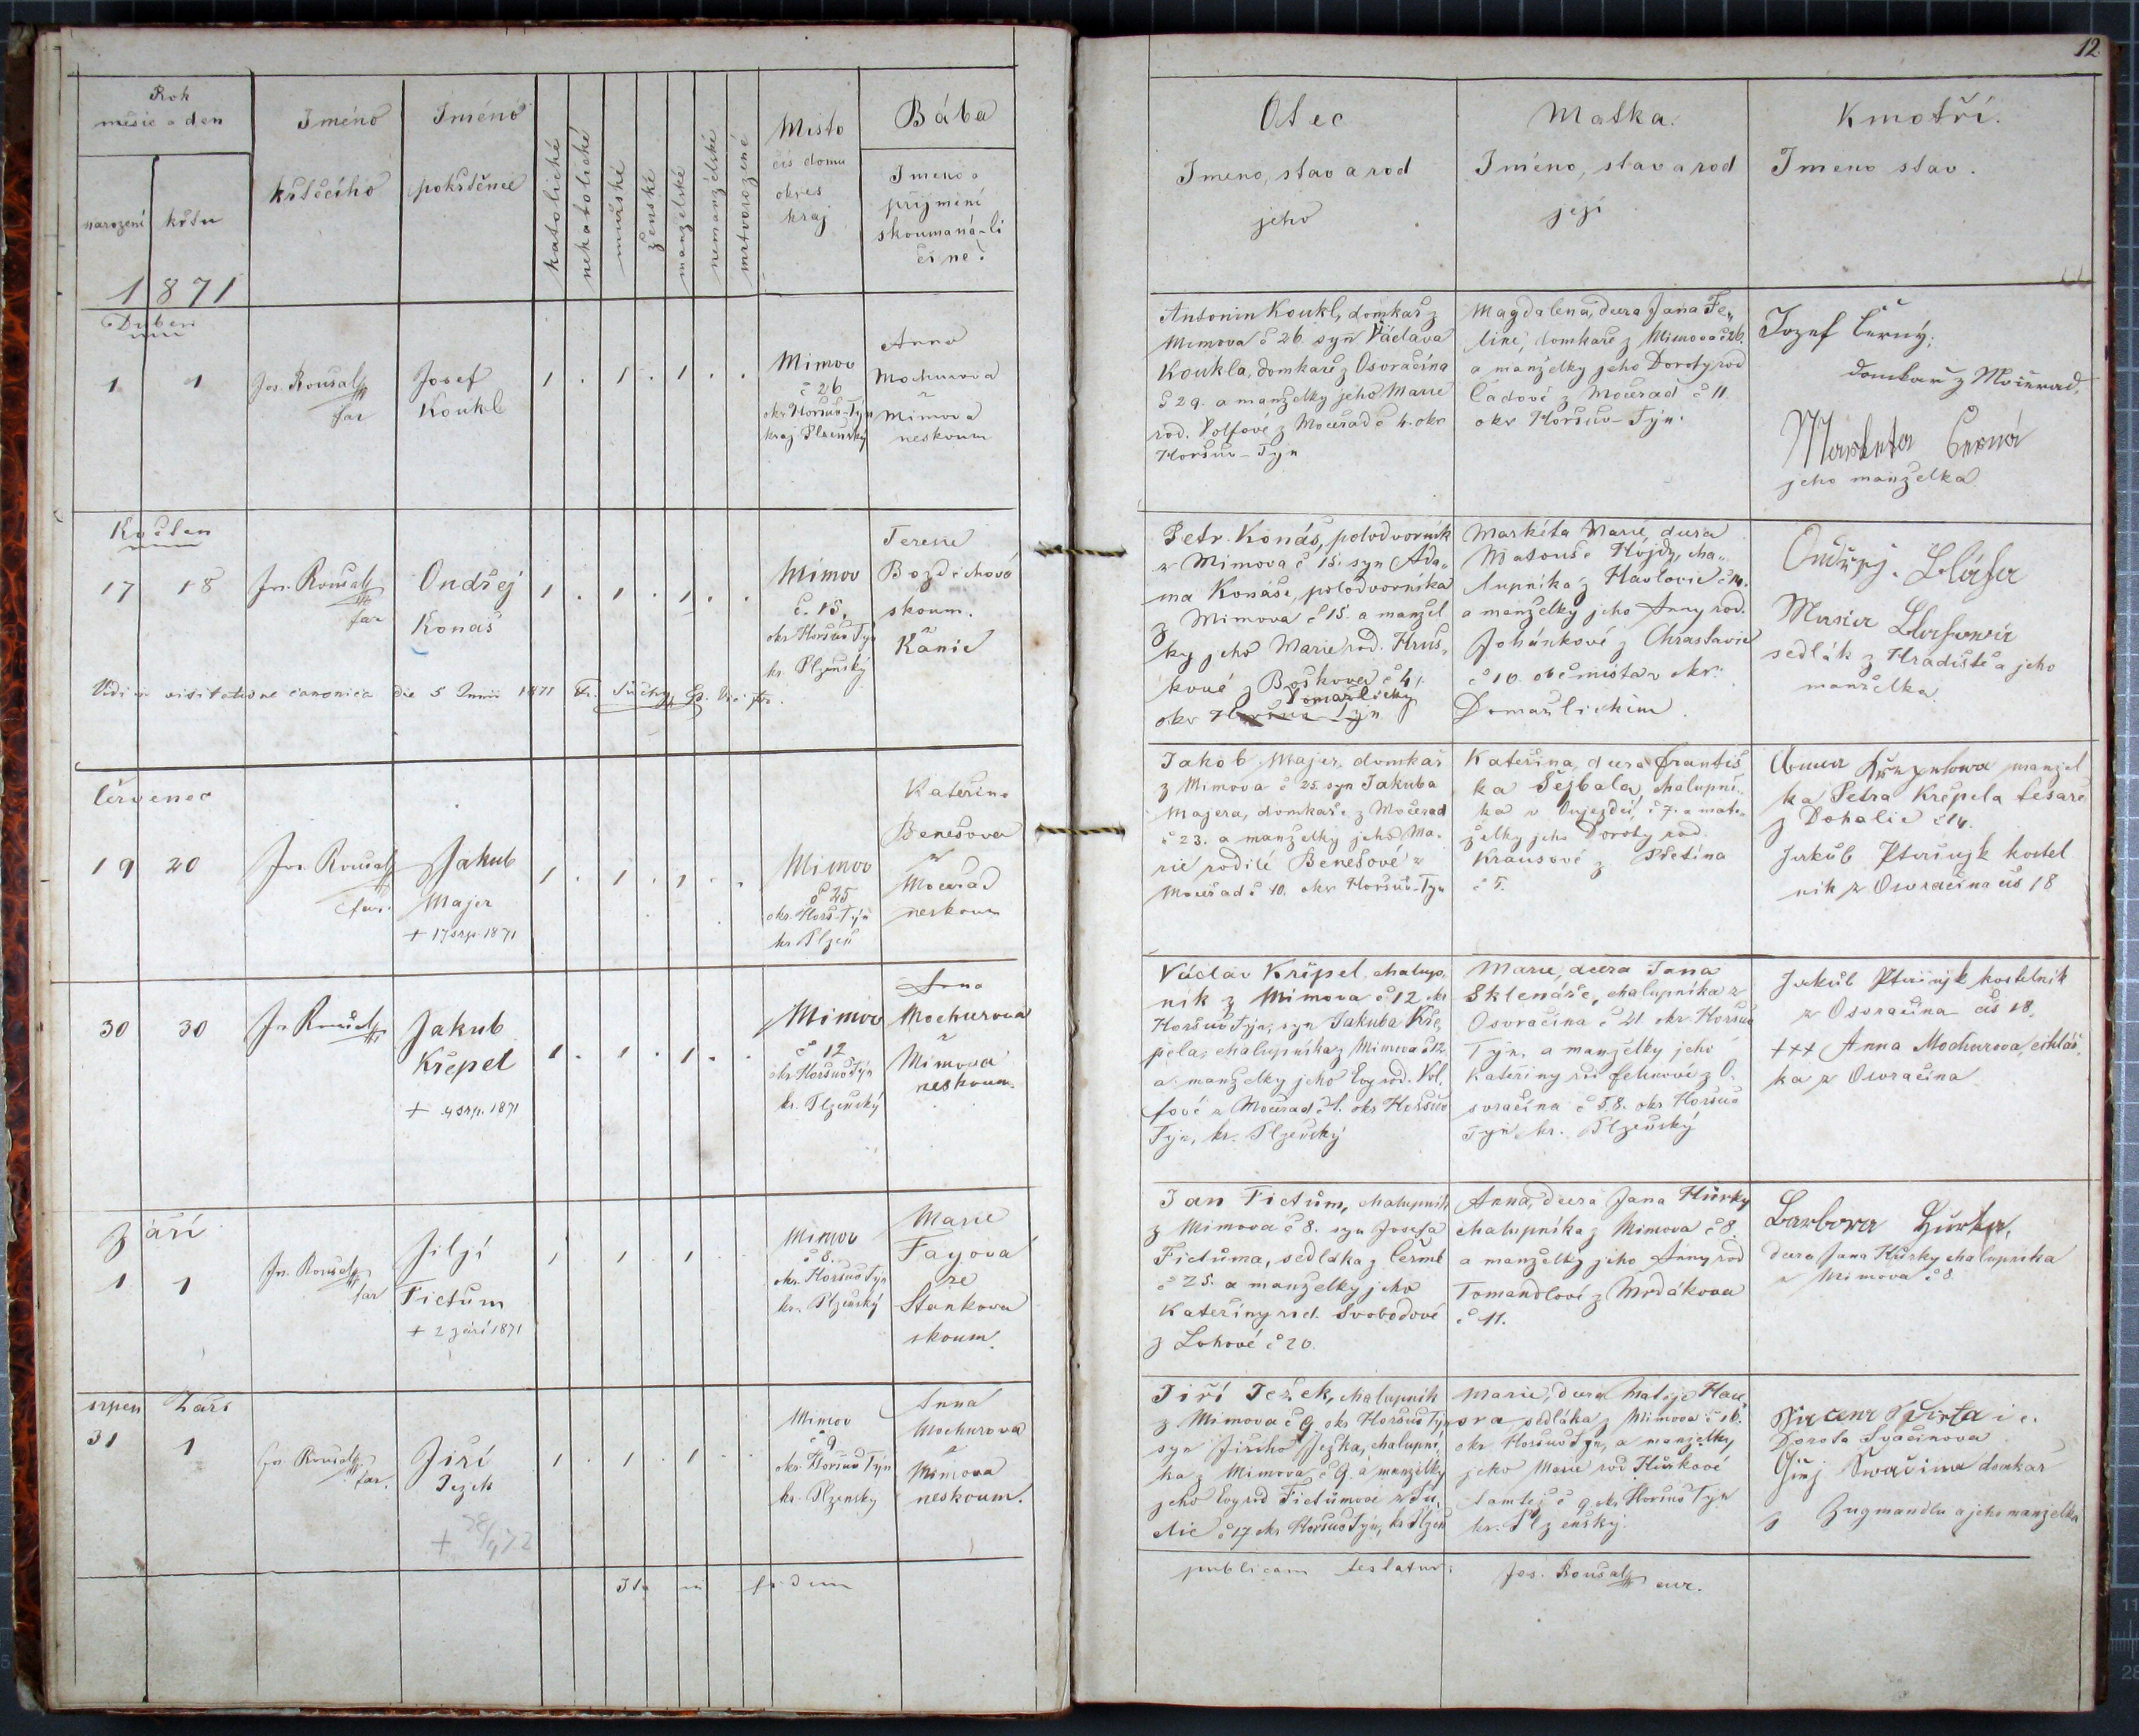 12.
Rok
měsíc a den
narození
křtu
1871
Jméno
křtícího
Jméno
pokřtěnce
katolické
nekatolické
mužské
ženské
manželské
nemanželské
mrtvorozené
Místo
čís domu
okres
kraj
Bába
Jmeno a
příjmení
skoumaná-li
či ne?
Otec
Jmeno, stav a rod
jeho
Matka.
Jméno, stav a rod
její
Kmotři.
Jmeno stav.
Duben
1 1
Jos. Rousal
far
Josef
Koukl
1 . 1 . 1 . .
Mimov
č 26
okr Horšův-Týn
kraj Plzenský
Anna
Mochurova
z
Mimova
neskoum
Antonin Koukl, domkař z
Mimova č 26. syn Václava
Koukla, domkaře z Osvračína
č 29. a manželky jeho Marie
rod. Volfové z Močerad č 4. okr
Horšův-Týn
Magdalena, dcera Jana Fe„
line, domkaře z Mimova č 26.
a manželky jeho Doroty rod
Čadové z Močerad č 11
okr Horšův-Týn.
Jozef Černý,
domkař z Močerad,
Marketa Černá
jeho manželka
Květen
17 18
Jos. Rousal
far
Ondřej
Konaš
1 . 1 . 1 . .
Mimov
č. 15,
okr Horšův Týn
kr. Plzenský
Terezie
Bozděchová
skoum.
z
Kanic
Petr Konáš, polodvorník
z Mimova č 15. syn Ada„
ma Konáše, polodvorníka
z Mimova č 15. a manžel
ky jeho Marie rod. Hruš„
kové z Boškova č 41
Domažlický
okr Horšův Týn
Markéta Marie, dcera
Matouše Hojdy, cha„
lupníka z Havlovic č 14.
a manželky jeho Anny rod.
Johánkové z Chrastavic
č 10. obě místa v okr.
Domažlickém
Ondřej. Bláha
Maria Blahowá
sedlák z Hradiště a jeho
manželka
Vidi in visitatione canonica die 5 Junii 1871
červenec
19 20
Jos. Rousal
far.
Jakub
Majer
+ 17 srp. 1871
1 . 1 . 1 . .
Mimov
č 25
okr. Horš-Týn
kr. Plzeň
Kateřina
Benešova
z
Močerad
neskoum
Jakob Majer, domkář
z Mimova č 25. syn Jakuba
Majera, domkaře z Močerad
č 23. a manželky jeho Ma„
rie rodilé Benešové z
Močerad č 10. okr Horšův-Týn
Kateřina, dcera Františ
ka Šejbala, chalupní„
ka v Oujezdci, č 7. a man„
želky jeho Doroty rod.
Krausové z Přetína
č 5.
manžel
ka Petra Křepela tesaře
z Dohalic č 14.
Jakub kostel
nik z Oswračina čís 18
30 30
Jos Rousal
Jakub
Křepel
+ 4 srp. 1871
1 . 1 . 1 . .
Mimov
č 12
okr Horšův Týn
kr. Plzenský
Anna
Mochurova
z
Mimova
neskoum.
Václav Křipel, chalup„
nik z Mimova č 12 okr
Horšův Týn, syn Jakuba Kře„
pela, chalupníka z Mimova č 12
a manželky jeho Evy rod. Vol„
fové z Močerad č 4. okr Horšův
Týn, kr. Plzenský
Marie, dcera Jana
Sklenáře, chalupníka z
Osvračína č 21 okr Horšův
Týn, a manželky jeho
Kateřiny roz Felinové z O„
svračína č 58. okr Horšův
Týn kr. Plzenský
Jakub kostelnik
z Osvračina čís 18,
+++ Anna Mochurova,
ka z Osvračína
Září
1 1
Jos. Rousal
far
Jiljí
Fictum
+ 2 září 1871
1 1 1
Mimov
č 8.
okr. Horšův Týn
kr. Plzenský
Marie
Fayová
ze
Stankova
skoum.
Jan Fictům, chalupník
z Mimova č 8. syn Josefa
Fictůma, sedláka z Čermé
č 25. a manželky jeho
Kateřiny rod. Svobodové
z Lohové č 20.
Anna, dcera Jana Hůrky
chalupníka z Mimova č 8.
a manželky jeho Anny rod
Tomandlové z Mrdákova
č 11.
Barbora Hůrka,
dcera Jana Hůrky chalupníka
z Mimova č 8
srpen Září
31 1
Jos Rousal
far.
Jiří
Jezek
1 . 1 . 1 . .
Mimov
č 9
okr. Horšův Týn
kr. Plzensky
Anna
Mochurova
z
Mimova
neskoum.
Jiří Ježek, chalupník
z Mimova č 9. okr Horšův Týn
syn Jiřího Ježka, chalupní„
ka z Mimova č 9. a manželky
jeho Evy rod Fictůmové
č 17 okr Horšův Týn, kr Plzeň
Marie, dcera Matěje
sedláka z Mimova č 16.
okr Horšův Týn, a manželky
jeho Marie rod Hůrkové
tamtéž č 9 okr Horšův Týn
kr. Plzenský.
Dorota Svačinova
Jiřej Swačina domkář
z Zugmandlu a jeho manželka
Ita in fidem
publicam testatur:
Jos. Rousal cur.